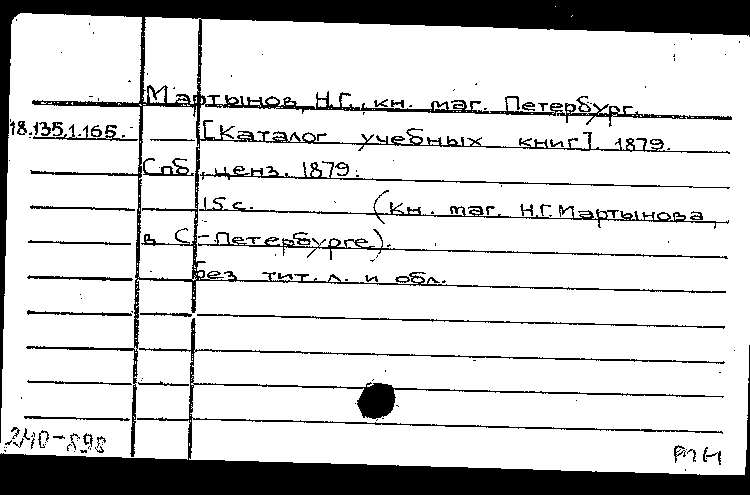 Мартынов, Н.Г., кн. маг. Петербург.
18.135.1.165. [Каталог учебных книг]. 1879.
Спб, ценз. 1879.
15 с. (Кн. маг. Н.Г. Мартынова,
в С-Петербурге).
Без тит. л. и обл.
240-898